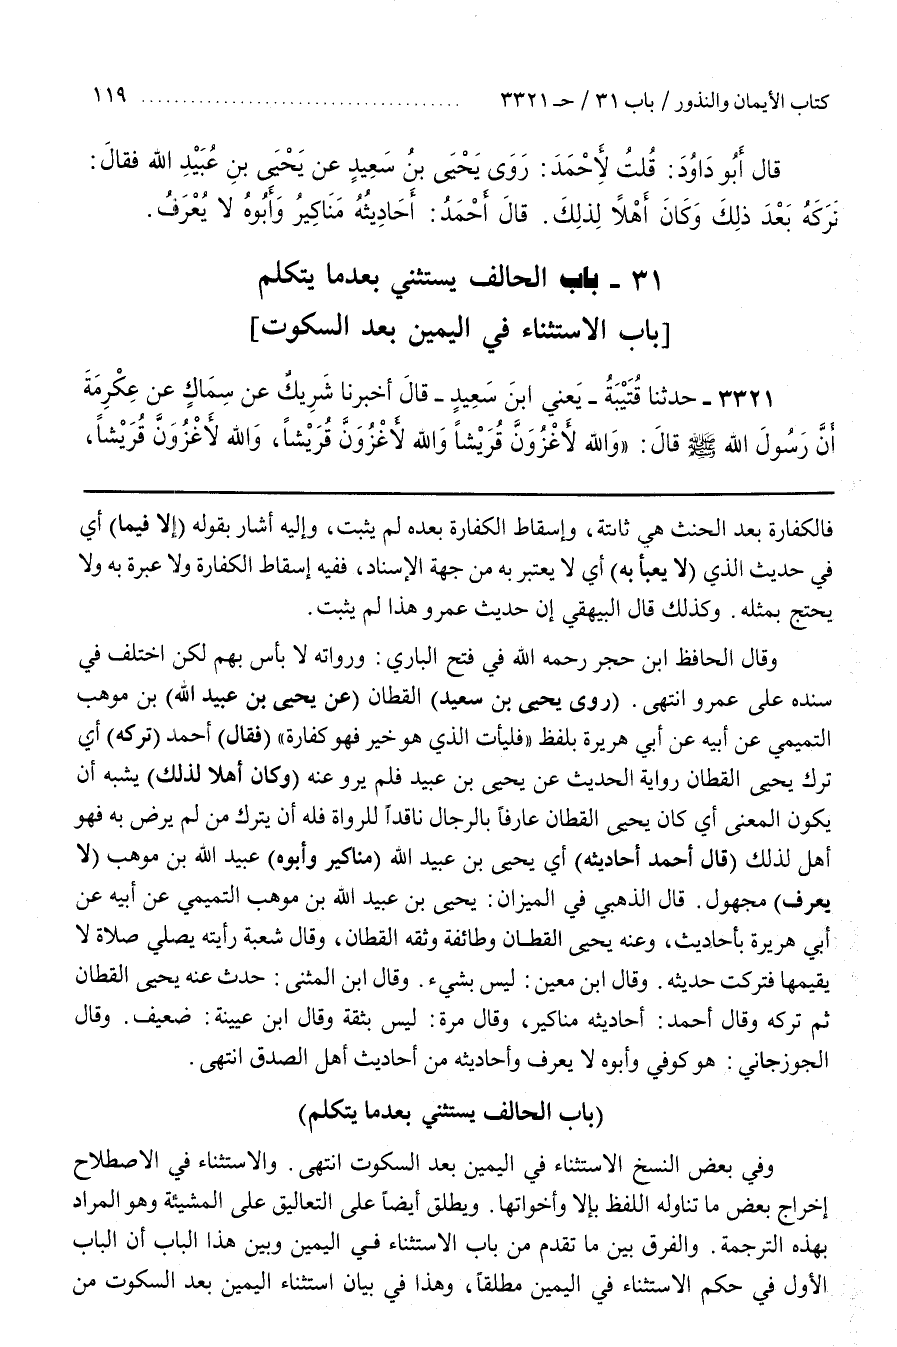 كتاب الأيمان والنذور / باب ٣١ / حـ ٣٣٢١ ........................................ ١١٩
قال أَبُو دَاوُدَ: قُلتُ لِأَحْمَدَ: رَوَى يَحْيَى بنُ سَعِيدٍ عن يَحْيَى بنِ عُبَيْدِ الله فقالَ:
تَرَكَهُ بَعْدَ ذلِكَ وَكَانَ أَهْلاً لِذلِكَ. قالَ أَحْمَدُ: أَحَادِيثُهُ مَنَاكِيرُ وَأَبُوهُ لا يُعْرَفُ.
٣١ - باب الحالف يستثني بعدما يتكلم
[باب الاستثناء في اليمين بعد السكوت]
٣٣٢١ - حدثنا قُتَيْبَةُ - يَعني ابنَ سَعِيدٍ - قالَ أخبرنا شَرِيكٌ عن سِمَاكٍ عن عِكْرِمَةَ
أَنَّ رَسُولَ الله ﷺ قالَ: «وَالله لَأَغْزُوَنَّ قُرَيْشاً وَالله لَأَغْزُوَنَّ قُرَيْشاً، وَالله لَأَغْزُوَنَّ قُرَيْشاً،
فالكفارة بعد الحنث هي ثابتة، وإسقاط الكفارة بعده لم يثبت، وإليه أشار بقوله (إلا فيما) أي
في حديث الذي (لا يعبأ به) أي لا يعتبر به من جهة الإسناد، ففيه إسقاط الكفارة ولا عبرة به ولا
يحتج بمثله. وكذلك قال البيهقي إن حديث عمرو هذا لم يثبت.
وقال الحافظ ابن حجر رحمه الله في فتح الباري: ورواته لا بأس بهم لكن اختلف في
سنده على عمرو انتهى. (روى يحيى بن سعيد) القطان (عن يحيى بن عبيد الله) بن موهب
التميمي عن أبيه عن أبي هريرة بلفظ «فليأت الذي هو خير فهو كفارة» (فقال) أحمد (تركه) أي
ترك يحيى القطان رواية الحديث عن يحيى بن عبيد فلم يرو عنه (وكان أهلا لذلك) يشبه أن
يكون المعنى أي كان يحيى القطان عارفاً بالرجال ناقداً للرواة فله أن يترك من لم يرض به فهو
أهل لذلك (قال أحمد أحاديثه) أي يحيى بن عبيد الله (مناكير وأبوه) عبيد الله بن موهب (لا
يعرف) مجهول. قال الذهبي في الميزان: يحيى بن عبيد الله بن موهب التميمي عن أبيه عن
أبي هريرة بأحاديث، وعنه يحيى القطـان وطائفة وثقه القطان، وقال شعبة رأيته يصلي صلاة لا
يقيمها فتركت حديثه. وقال ابن معين: ليس بشيء. وقال ابن المثنى: حدث عنه يحيى القطان
ثم تركه وقال أحمد: أحاديثه مناكير، وقال مرة: ليس بثقة وقال ابن عيينة: ضعيف. وقال
الجوزجاني: هو كوفي وأبوه لا يعرف وأحاديثه من أحاديث أهل الصدق انتهى.
(باب الحالف يستثني بعدما يتكلم)
وفي بعض النسخ الاستثناء في اليمين بعد السكوت انتهى. والاستثناء في الاصطلاح
إخراج بعض ما تناوله اللفظ بإلا وأخواتها. ويطلق أيضاً على التعاليق على المشيئة وهو المراد
بهذه الترجمة. والفرق بين ما تقدم من باب الاستثناء فـي اليمين وبين هذا الباب أن الباب
الأول في حكم الاستثناء في اليمين مطلقاً، وهذا في بيان استثناء اليمين بعد السكوت من